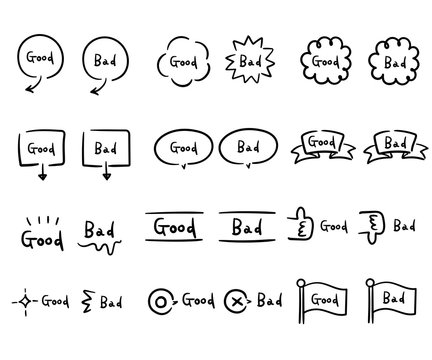 Good Bad Good Bad Good Bad
Good Bad Good Bad Good Bad
Good Bad Good Bad Good Bad
Good Bad Good Bad Good Bad